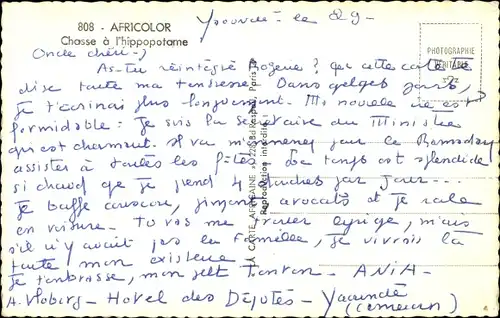 808 - AFRICOLOR
Chasse à l'hippopotame
Yaoundé - le 29 -
Oncle chéri -
As-tu réintégré ? que cette carte te
dise toute ma tendresse. Dans qelqes jours,
je t'écrirai plus longuement. Ma nouvelle vie est
formidable : Je suis la secrétaire du Ministre
qui est charmant. Il va m'emmener pour le Ramadan
assister à toutes les fêtes. Le temps est splendide
si chaud que je prend 4 douches par jour...
Je bouffe couscou, piment, avocats et je
en voiture. Tu vas me trouver , mais
s'il n'y avait pas la famille, je vivrais là
toute mon existence
je t'embrasse, mon ptt Tonton - ANIA -
A. - Hotel des Députés - Yaoundé
(Cameroun)
PHOTOGRAPHIE
VÉRITABLE
LA CARTE AFRICAINE Raspail, Paris
Reproduction interdite